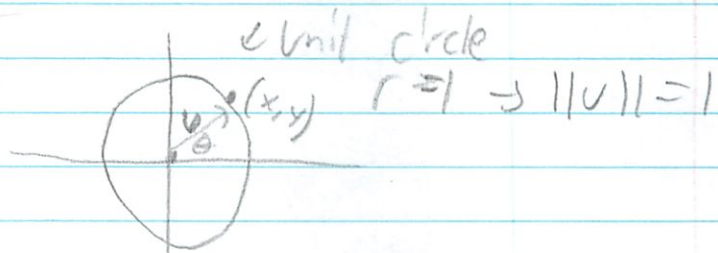 ↙ Unit circle
r = 1 → ||v|| = 1
(x, y)
v
θ